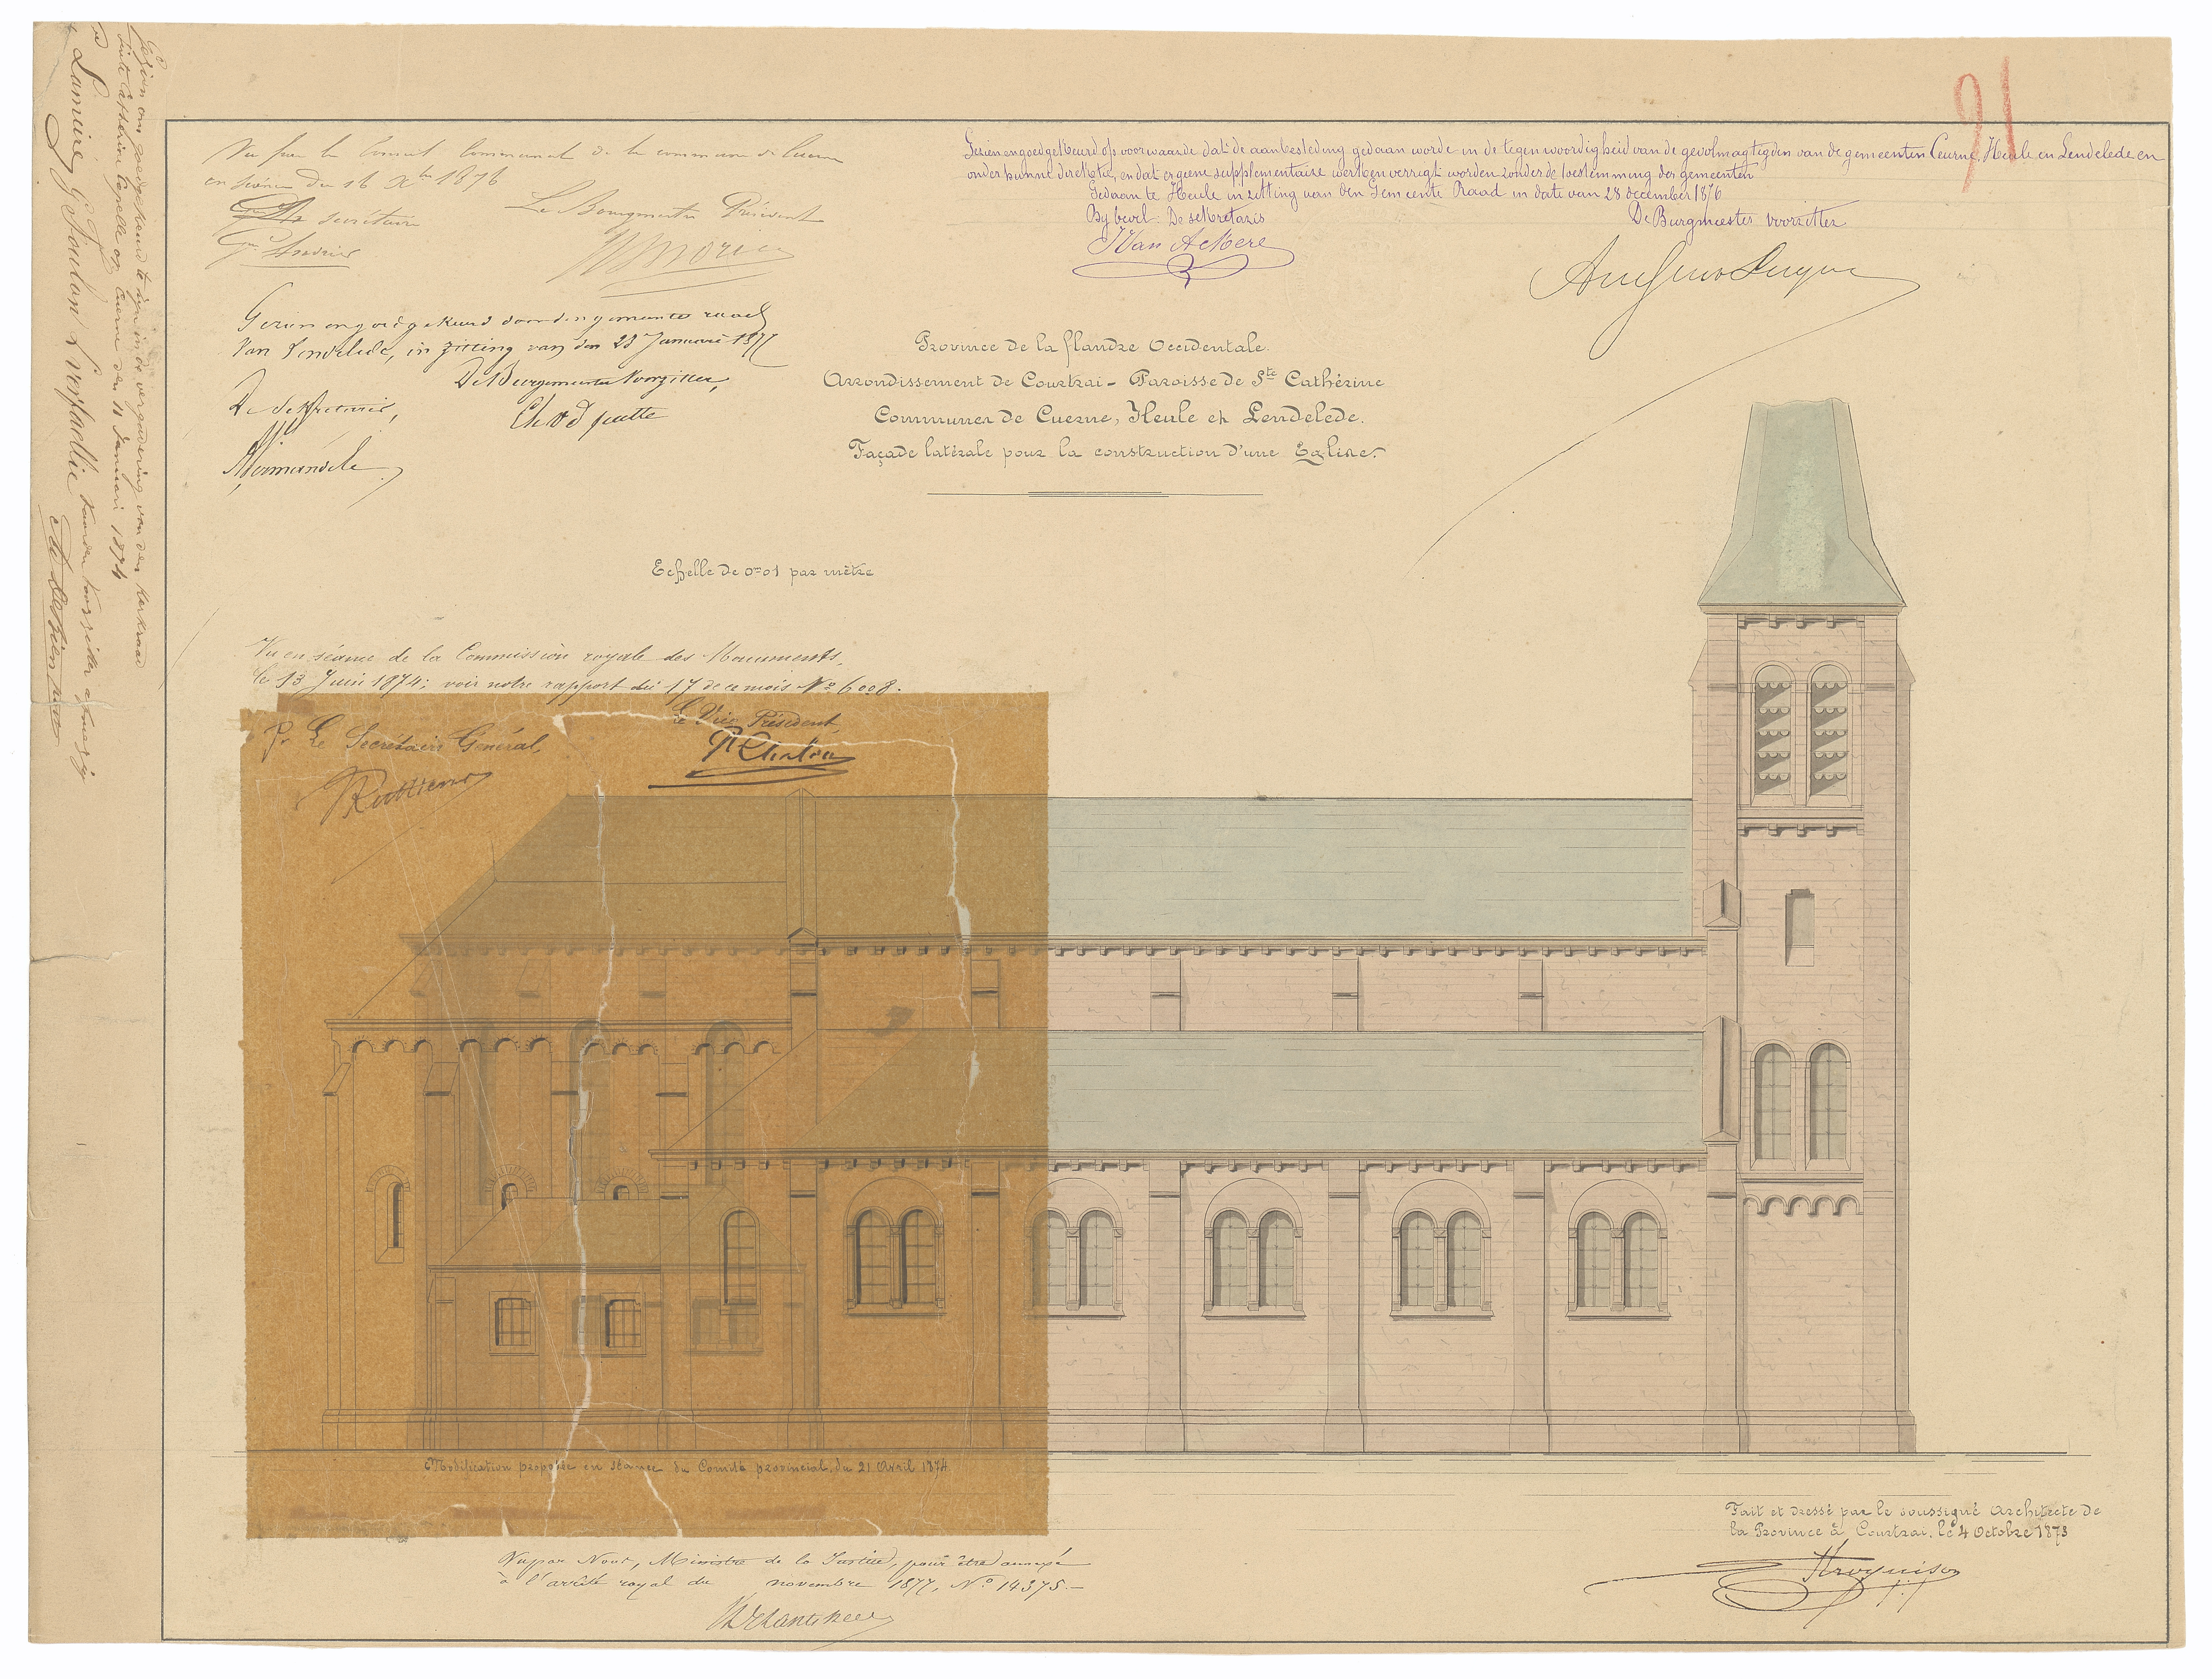 91
Vu par le Conseil Communal de la commune de Cuerne
en séance du 16 Xbre 1876
Le secrétaire
Le Bourgmestre Président
Gezien en goedgekeurd op voorwaarde dat de aanbesteding gedaan worde in de tegenwoordigheid van de gevolmagtigden van de gemeenten Ceurne, Heule en Lendelede en
onder hunne direktie, en dat er geene supplementaire werken verrigt worden zonder de toestemming der gemeenten
Gedaan te Heule in zitting van den Gemeente Raad in date van 28 december 1876
By bevel: De sekretaris
De Burgmeester voorzitter
JVan Ackere
Gezien en goedgekeurd door den gemeente raad
van Lendelede, in zitting van den 23 Januari 1877
De Sekretaris,
De Burgemeester Voorzitter,
Province de la flandre Occidentale.
Arrondissement de Courtrai - Paroisse de Ste Cathérine
Communes de Cuerne, Heule et Lendelede.
Façade latérale pour la construction d'une Eglise.
Echelle de 0m01 par mètre
Vu en séance de la Commission royale des Monuments,
le 13 Juin 1874; voir notre rapport du 17 de ce mois No 6008.
Pr Le Secrétaire Général,
Le Vice Président,
Modification proposée en séance du Comité provincial, du 21 Avril 1874
Fait et dressé par le soussigné Architecte de
la Province à Courtrai, le 4 Octobre 1873
Vu par Nous, Ministre de la Justice, pour être annexé
à l'arrêté royal du novembre 1877, No 14375.-
Gezien en goedgekeurd te zijn in de vergadering van den Kerkraad
Sinte Catherine Capelle op Cuerne den 11 Januari 1874